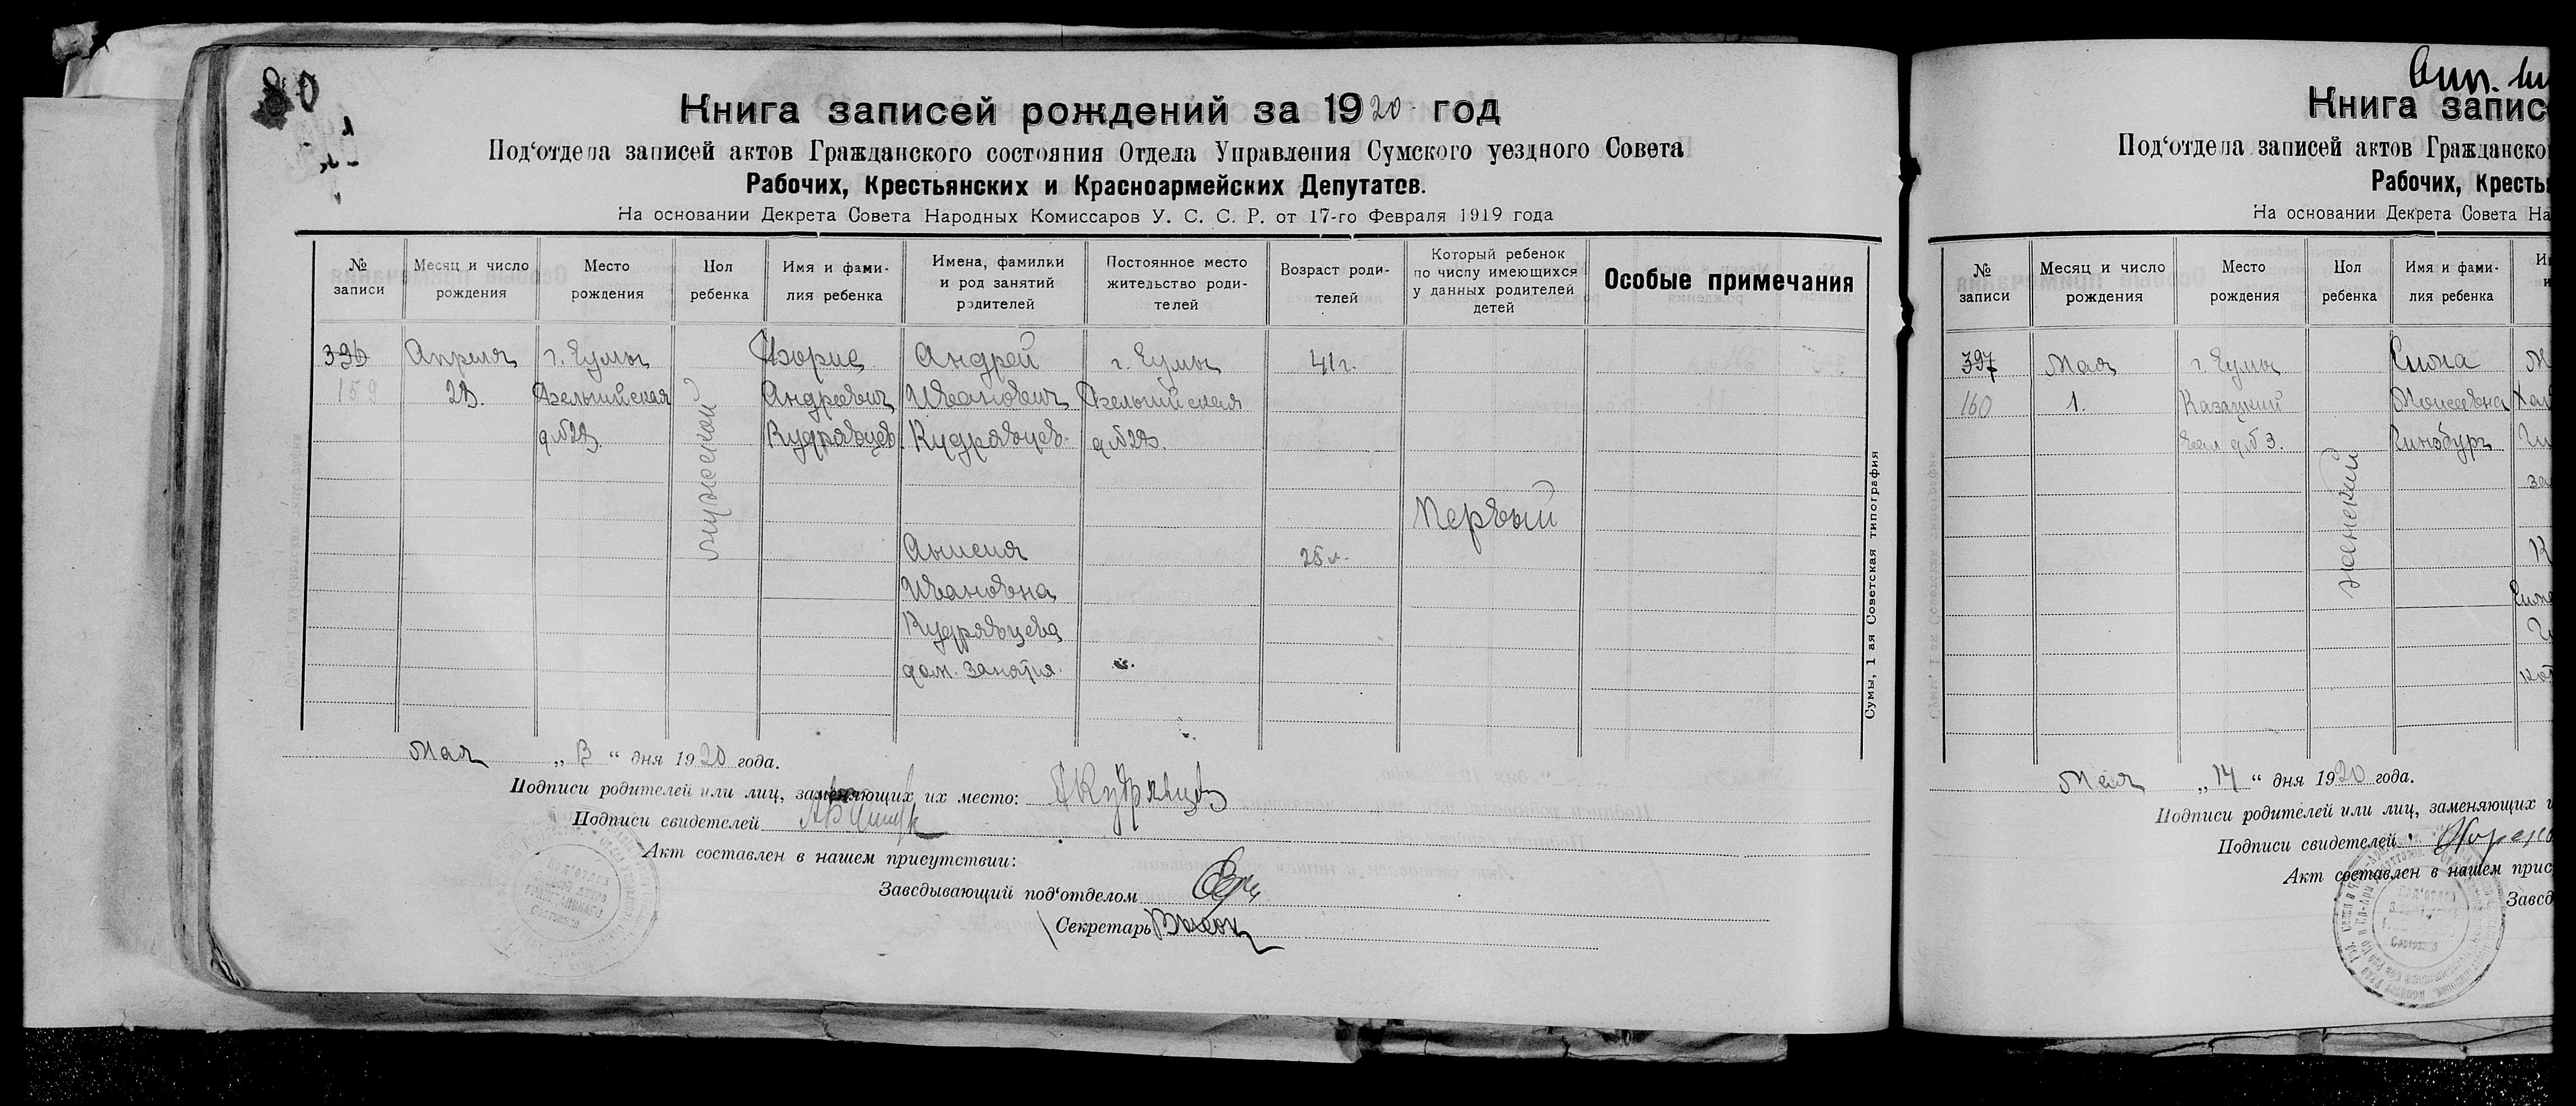 80
Книга записей рождений за 1920 год
Под‘отдела записей актов Гражданского состояния Отдела Управления Сумского уездного Совета
Рабочих, Крестьянских и Красноармейских Депутатов.
На основании Декрета Совета Народных Комиссаров У. С. С. Р. от 17-го Февраля 1919 года
№ записи
Месяц и число рождения
Место рождения
Пол ребенка
Имя и фами-
лия ребенка
Имена, фамилии
и род занятий
родителей
Постоянное место
жительство роди-
телей
Возраст роди-
телей
Который ребенок
по числу имеющихся
у данных родителей
детей
Особые примечания
396
159
Апреля
28.
г. Сумы
д. №28.
мужеской
Борис
Андреевич
Кудрявцев.
Андрей
Иванович
Кудрявцев.
Ивановна
Кудрявцева
дом. занятия.
г. Сумы
д. №28.
41 г.
25 л.
Первый
Сумы, 1 ая Советская типография
Мая „ 8 “ дня 1920 года.
Подписи родителей или лиц, заменяющих их место: Кудрявцев
Подписи свидетелей
Акт составлен в нашем присутствии:
Заведывающий под‘отделом
Секретарь
Книга запис
Под‘отдела записей актов Гражданско
Рабочих, Кресть
На основании Декрета Совета На
№ записи
Месяц и число рождения
Место рождения
Пол ребенка
Имя и фами-
лия ребенка
397
160
Мая
1.
г. Сумы
Казацкий
вал д. № 3.
женский
Сима
Моисеевна
Гинзбург
Мая „ 14 “ дня 1920 года.
Подписи родителей или лиц, заменяющих и
Подписи свидетелей
Акт составлен в нашем прис
Завед